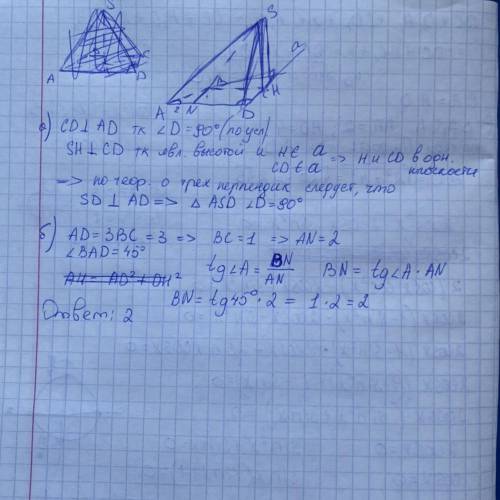 S
A
C
D
S
a
B
H
A
2
N
D
а) CD⊥AD тк ∠D=90°(по усл)
SH⊥CD тк явл. высотой и H∈a CD∈a => H и CD в одн. плоскости
=> по теор. о трех перпендик следует, что
SD⊥AD => △ASD ∠D=90°
б) AD=3BC=3 => BC=1 => AN=2
∠BAD=45°
tg∠A = BN/AN BN= tg∠A·AN
AH = AD²+DH²
BN= tg45°·2 = 1·2=2
Ответ: 2